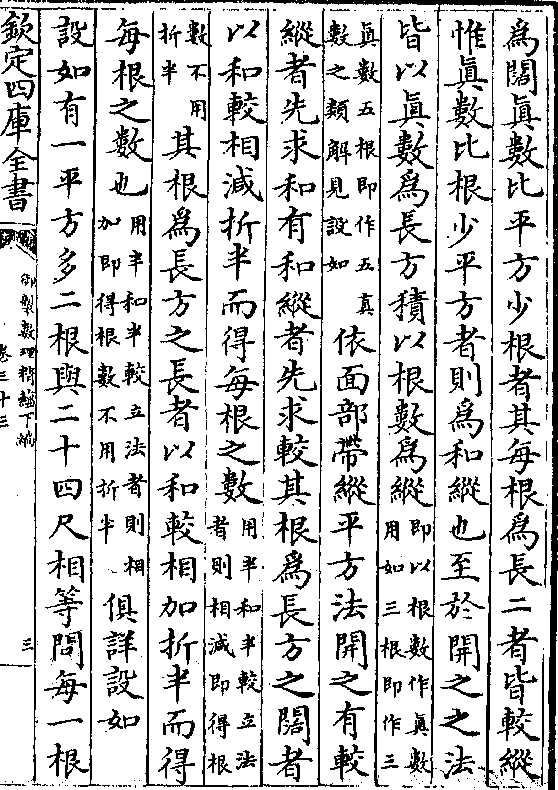 為闊真數比平方少根者其每根為長二者皆較縱
惟真數比根少平方者則為和縱也至於開之之法
皆以真數為長方積以根數為縱即以根數作真數用如三根即作三
真數五根即作五真數之類解見設如依面部帶縱平方法開之有較
縱者先求和有和縱者先求較其根為長方之闊者
以和較相減折半而得每根之數用半和半較立法者則相減即得根
數不用折半其根為長方之長者以和較相加折半而得
每根之數也用半和半較立法者則相加即得根數不用折半俱詳設如
設如有一平方多二根與二十四尺相等問每一根
欽定四庫全書
御製數理精蘊下編
卷三十三
三